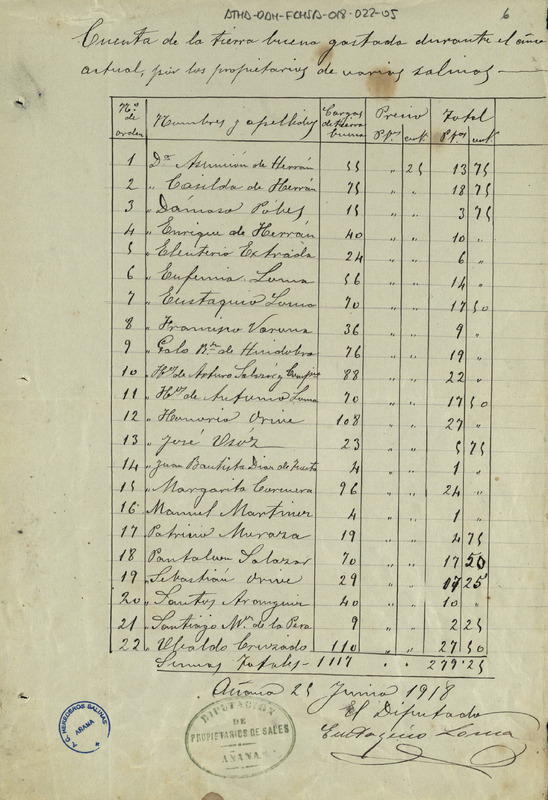 ATHA-DAH-FCHSA-018-022-05
6
Cuenta de la tierra buena gastada durante el año
actual, por los propietarios de varias salinas
Nº de orden Nombres y apellidos Cargas de tierra buena Precio Total
Pts cent Pts cent
1 Dª Asunción de Herrán 55 " 25 13 75
2 " Casilda de Herrán 75 " " 18 75
3 " Dámaso Pobes 15 " " 3 75
4 " Enrique de Herrán 40 " " 10 "
5 " Eleuterio Extrada 24 " " 6 "
6 " Eufemia Loma 56 " " 14 "
7 " Eustaquio Loma 70 " " 17 50
8 " Francisco Varona 36 " " 9 "
9 " Galo de Huidobro 76 " " 19 "
10 " de Arturo Salazár y 88 " " 22 "
11 " de Antonio Loma 70 " " 17 50
12 " Honorio Orive 108 " " 27 "
13 " José Usóz 23 " " 5 75
14 " Juan Bautista Diaz de 4 " " 1 "
15 " Margarita 96 " " 24 "
16 " Manuel Martinez 4 " " 1 "
17 " Patricio Muraza 19 " " 4 75
18 " Pantaleon Salazar 70 " " 17 50
19 " Sebastián Orive 29 " " 7 25
20 " Santos Aranguiz 40 " " 10 "
21 " Santiago de la Pera 9 " " 2 25
22 " Ubaldo Cruzado 110 " " 27 50
Sumas totales - 1117 " " 279'25
Añana 25 Junio 1918
El Diputado
Eustaquio Loma
DIPUTACIÓN
DE
PROPIETARIOS DE SALES
AÑANA
HEREDEROS SALINAS
AÑANA